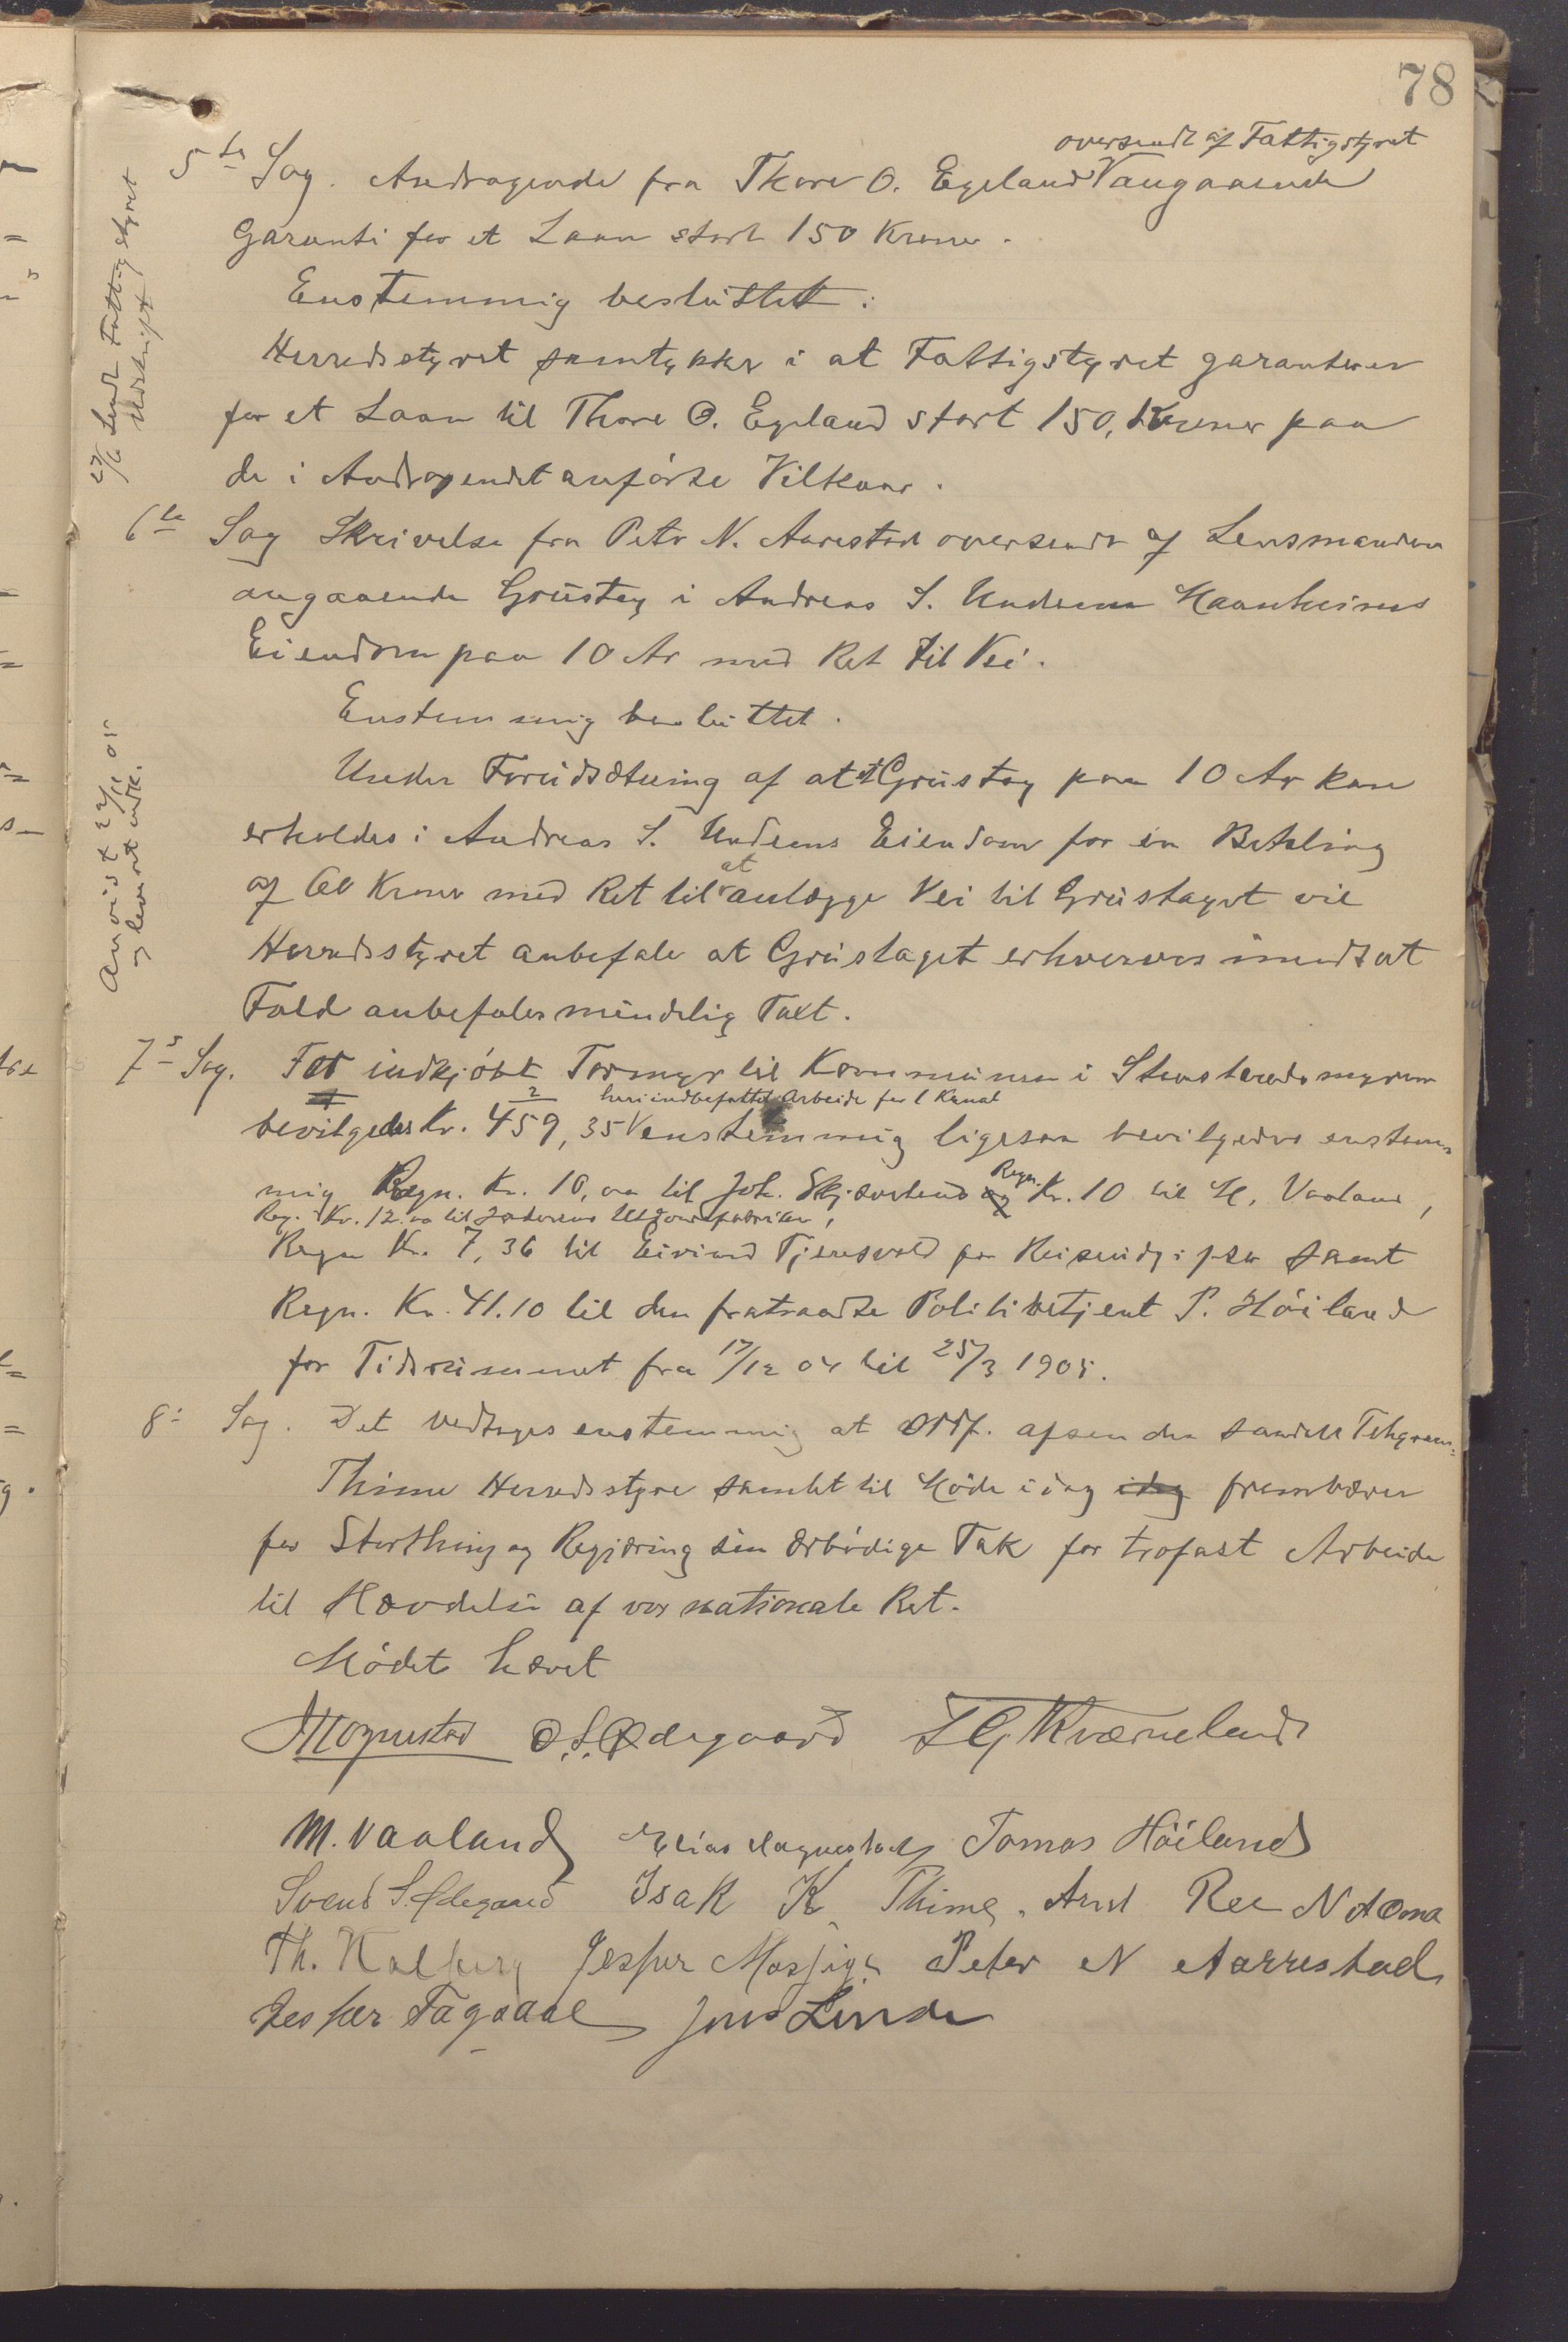 78
oversendt af Fattigstyret
5te Sag. Andragende fra Thore O. Egeland V angaaende
Garanti for et Laan stort 150 Kroner.
Enstemmig besluttet:
Herredsstyret samtykker i at Fattigstyret garanterer
for et Laan til Thore O. Egeland stort 150, Kroner paa
de i Andragendet anførte Vilkaar.
27/6 Sendt Fattigstyret
Udskrift
6te Sag Skrivelse fra Peter N. Aarestad oversendt af Lensmanden
angaaende Grustag i Andreas S. Undem Haanheims
Eiendom paa 10 Ar med Ret til Vei.
Enstemmig besluttet.
Under Forudsætning af at et Grustag paa 10 Ar kan
erholdes i Andreas S. Undems Eiendom for en Betaling
at
af 60 Kroner med Ret til V anlægge Vei til Grustaget vil
Herredsstyret anbefale at Grustaget erhverves i modsat
Fald anbefales mindelig Taxt.
Anvist 27/6 05
og levert
7de Sag. For indkjøbt Tormyr til Kommunen i
2 heri indbefattet Arbeide for 1 Kanal
bevilgedes Kr. 459,35 V enstemmig ligesaa bevilgedes enstem
Regn.
mig Regn. Kr. 10,oo til Joh. Skjæveland og Kr. 10 til H. Vaaland,
Reg. Kr. 12.oo til Jæderens Uldvarefabriker,
Regn Kr. 7,36 til Eivind Tjensvold for Reiseudgifter samt
Regn. Kr. 41.10 til den fratraadte Politibetjent P. Høiland
for Tidsrummet fra 17/12 04 til 25/3 1905.
8de Sag. Det vedtoges enstemmig at Ordf. afsender saadant Telegram:
Thime Herredsstyre samlet til Møde i dag idag frembærer
for Storthing og Regjæring sin ærbødige Tak for trofast Arbeide
til Hævdelse af vor nationale Ret.
Mødet hævet
O. S. Ødegaard
Kværneland
M. Vaaland Elias Haugnestad Tomas Høiland
Svend S. Ødegaard Isak K. Thime. Arnt Ree N Aomo
Th. Kalberg Jesper Mossige Peter N Aarrestad
Jesper Fagdaal Jons Linde